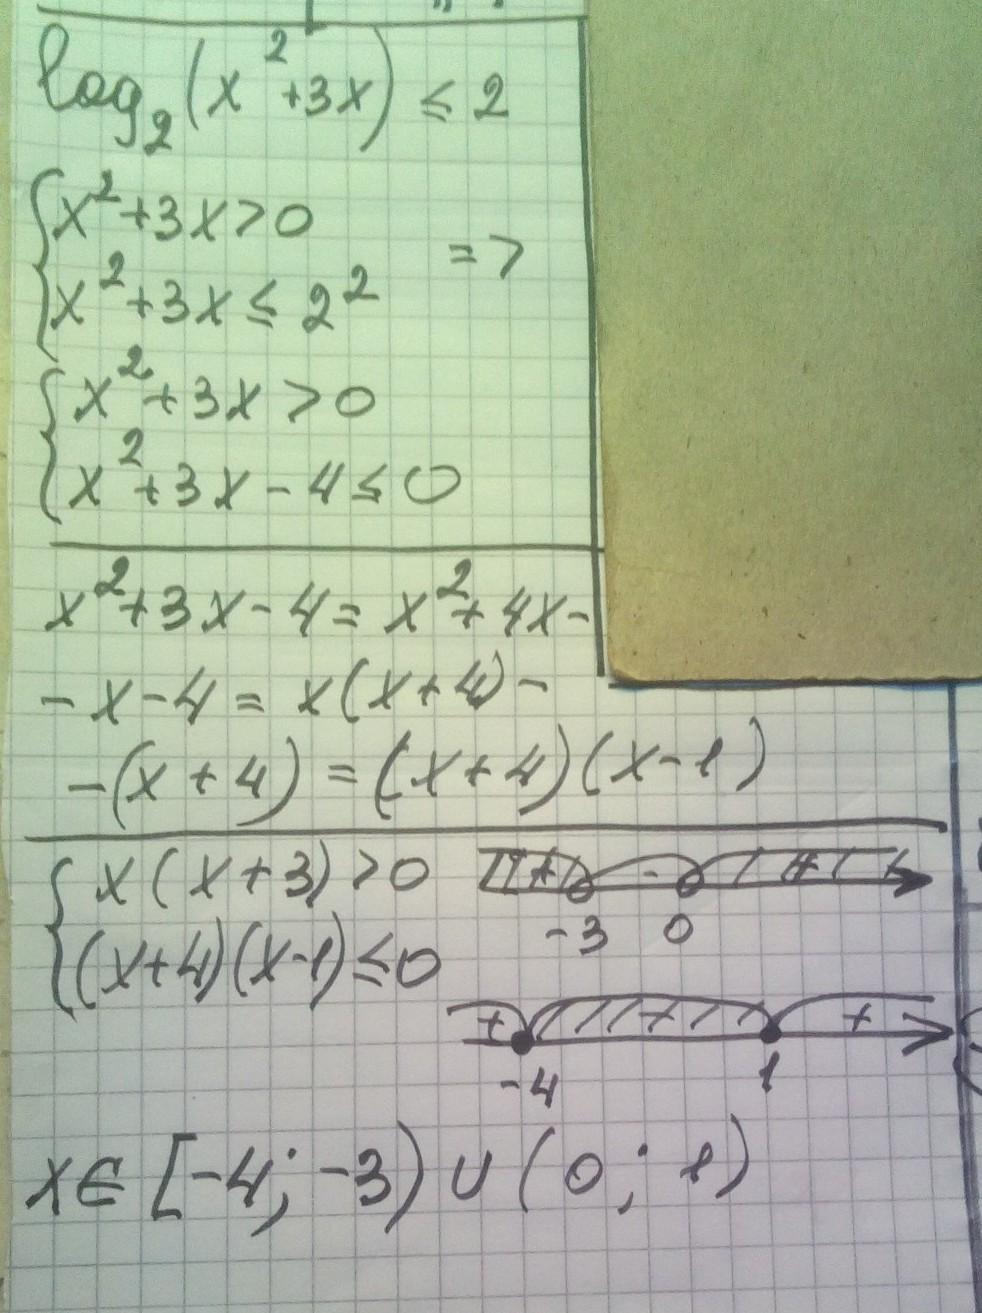 log₂(x²+3x) ≤ 2
x²+3x>0
=>
x²+3x ≤ 2²
x²+3x > 0
x²+3x-4 ≤ 0
x²+3x-4 = x²+4x-
-x-4 = x(x+4)-
-(x+4) = (x+4)(x-1)
x(x+3)>0
+ - +
-3 0
(x+4)(x-1)≤0
+ - +
-4 1
x∈[-4; -3) ∪ (0; 1)